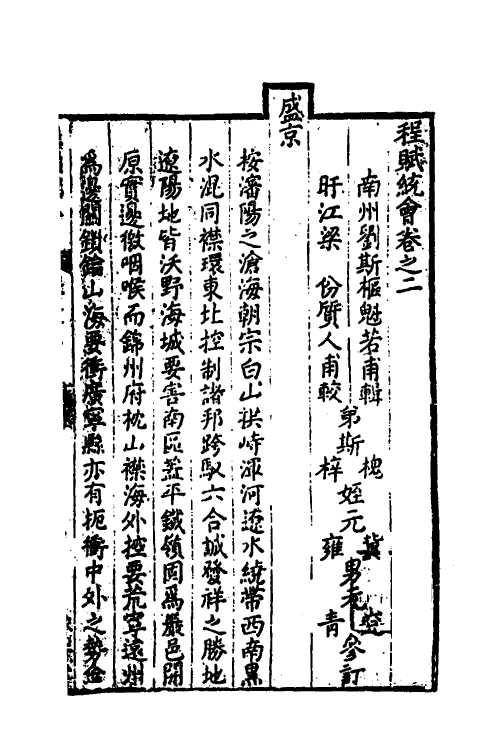 程賦統會卷之二
南州劉斯樞魁若甫輯
盱江梁　份質人甫較
弟斯槐
梓
姪元冀
雍
男夭
青
參訂
盛京
按瀋陽之滄海朝宗白山拱峙渾河遼水繞帶西南黑
水混同襟環東北控制諸邦跨馭六合誠發祥之勝地
遼陽地皆沃野海城要害南區蓋平鐵嶺固為嚴邑開
原實邊徼咽喉而錦州府枕山襟海外控要荒寧遠州
為邊關鎖鑰山海要衝廣寧縣亦有扼衝中外之勢金